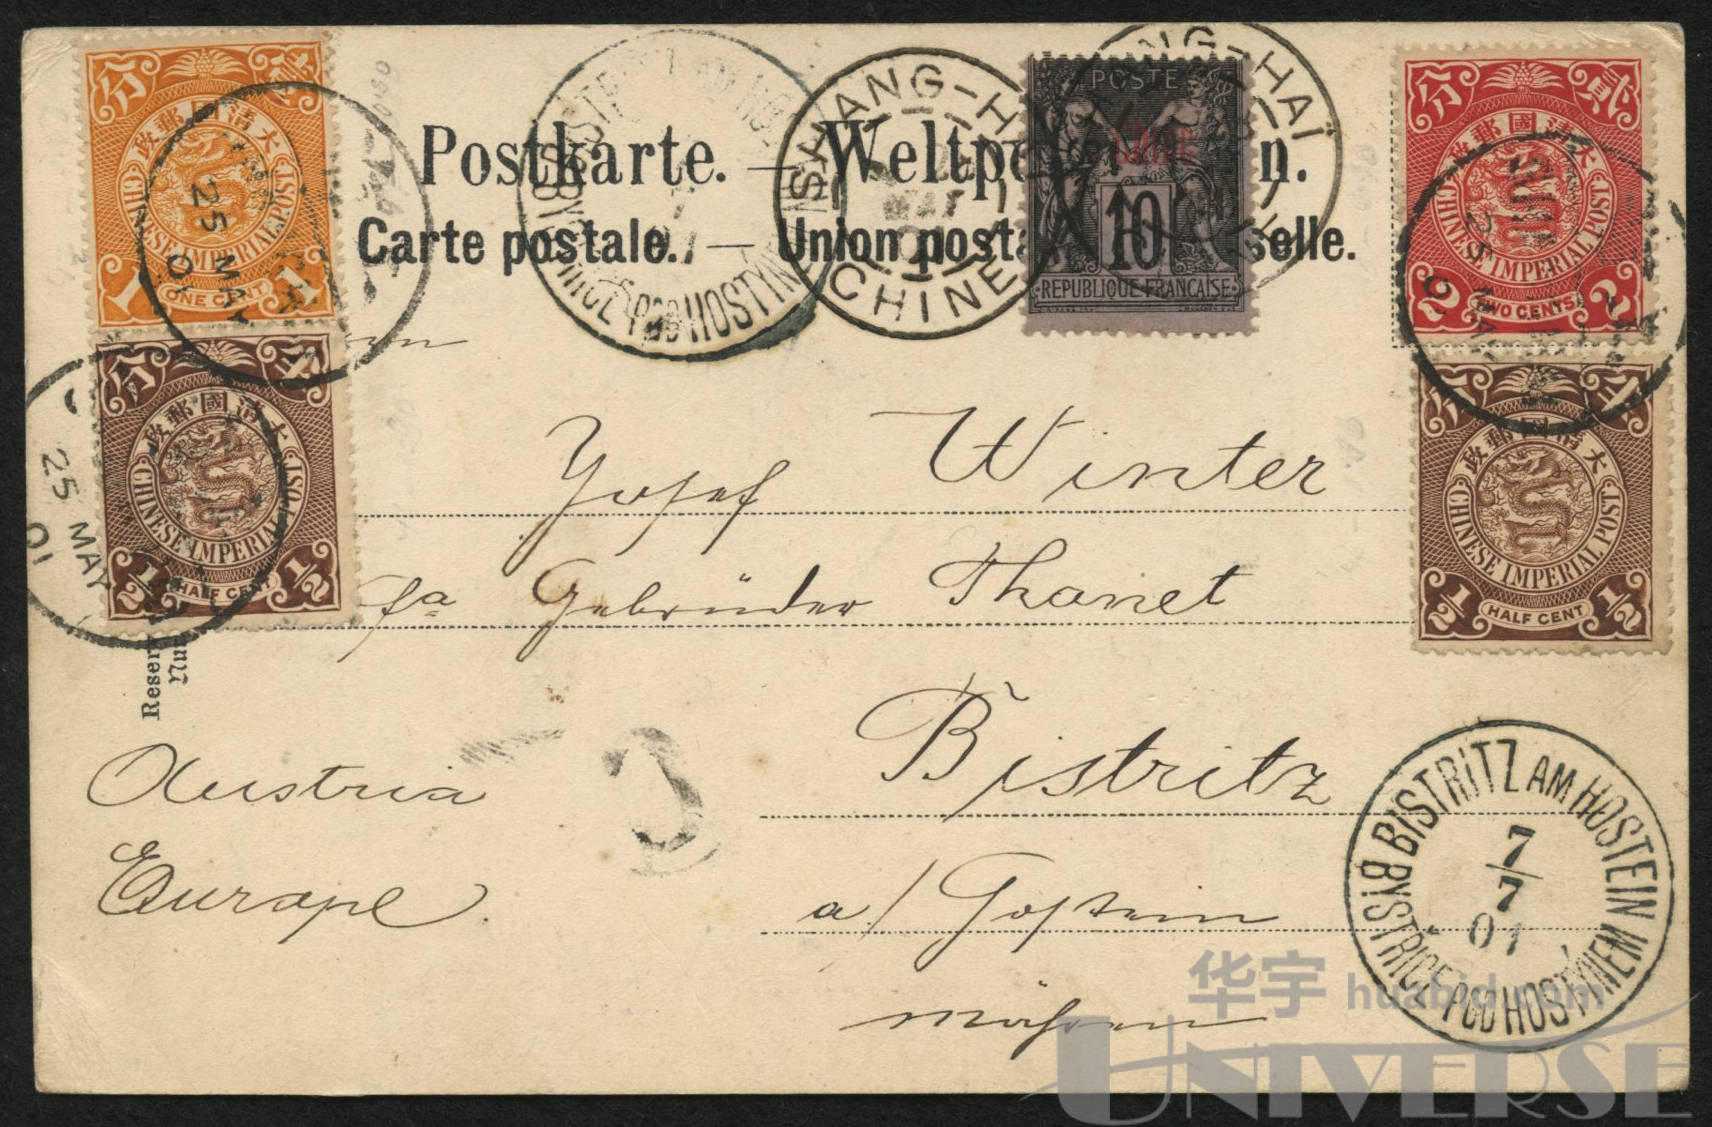 Postkarte. — Weltpo n.
Carte postale. — Union posta selle.
大清國郵政
CHINESE IMPERIAL POST
1 ONE CENT 1
25 MAY 01
大清國郵政
CHINESE IMPERIAL POST
½ HALF CENT ½
25 MAY 01
SHANG-HAÏ
CHINE
POSTE
Chine
10
REPUBLIQUE FRANÇAISE
SHANG-HAÏ
CHINE
大清國郵政
CHINESE IMPERIAL POST
2 TWO CENTS 2
大清國郵政
CHINESE IMPERIAL POST
½ HALF CENT ½
Josef Winter
fa Gebrüder Thonet
Bistritz
a/Hostein
Mähren
Austria
Europe.
BISTRITZ AM HOSTEIN
7/7 01
BYSTRICE POD HOSTYNEM
华宇 huabid.com
UNIVERSE